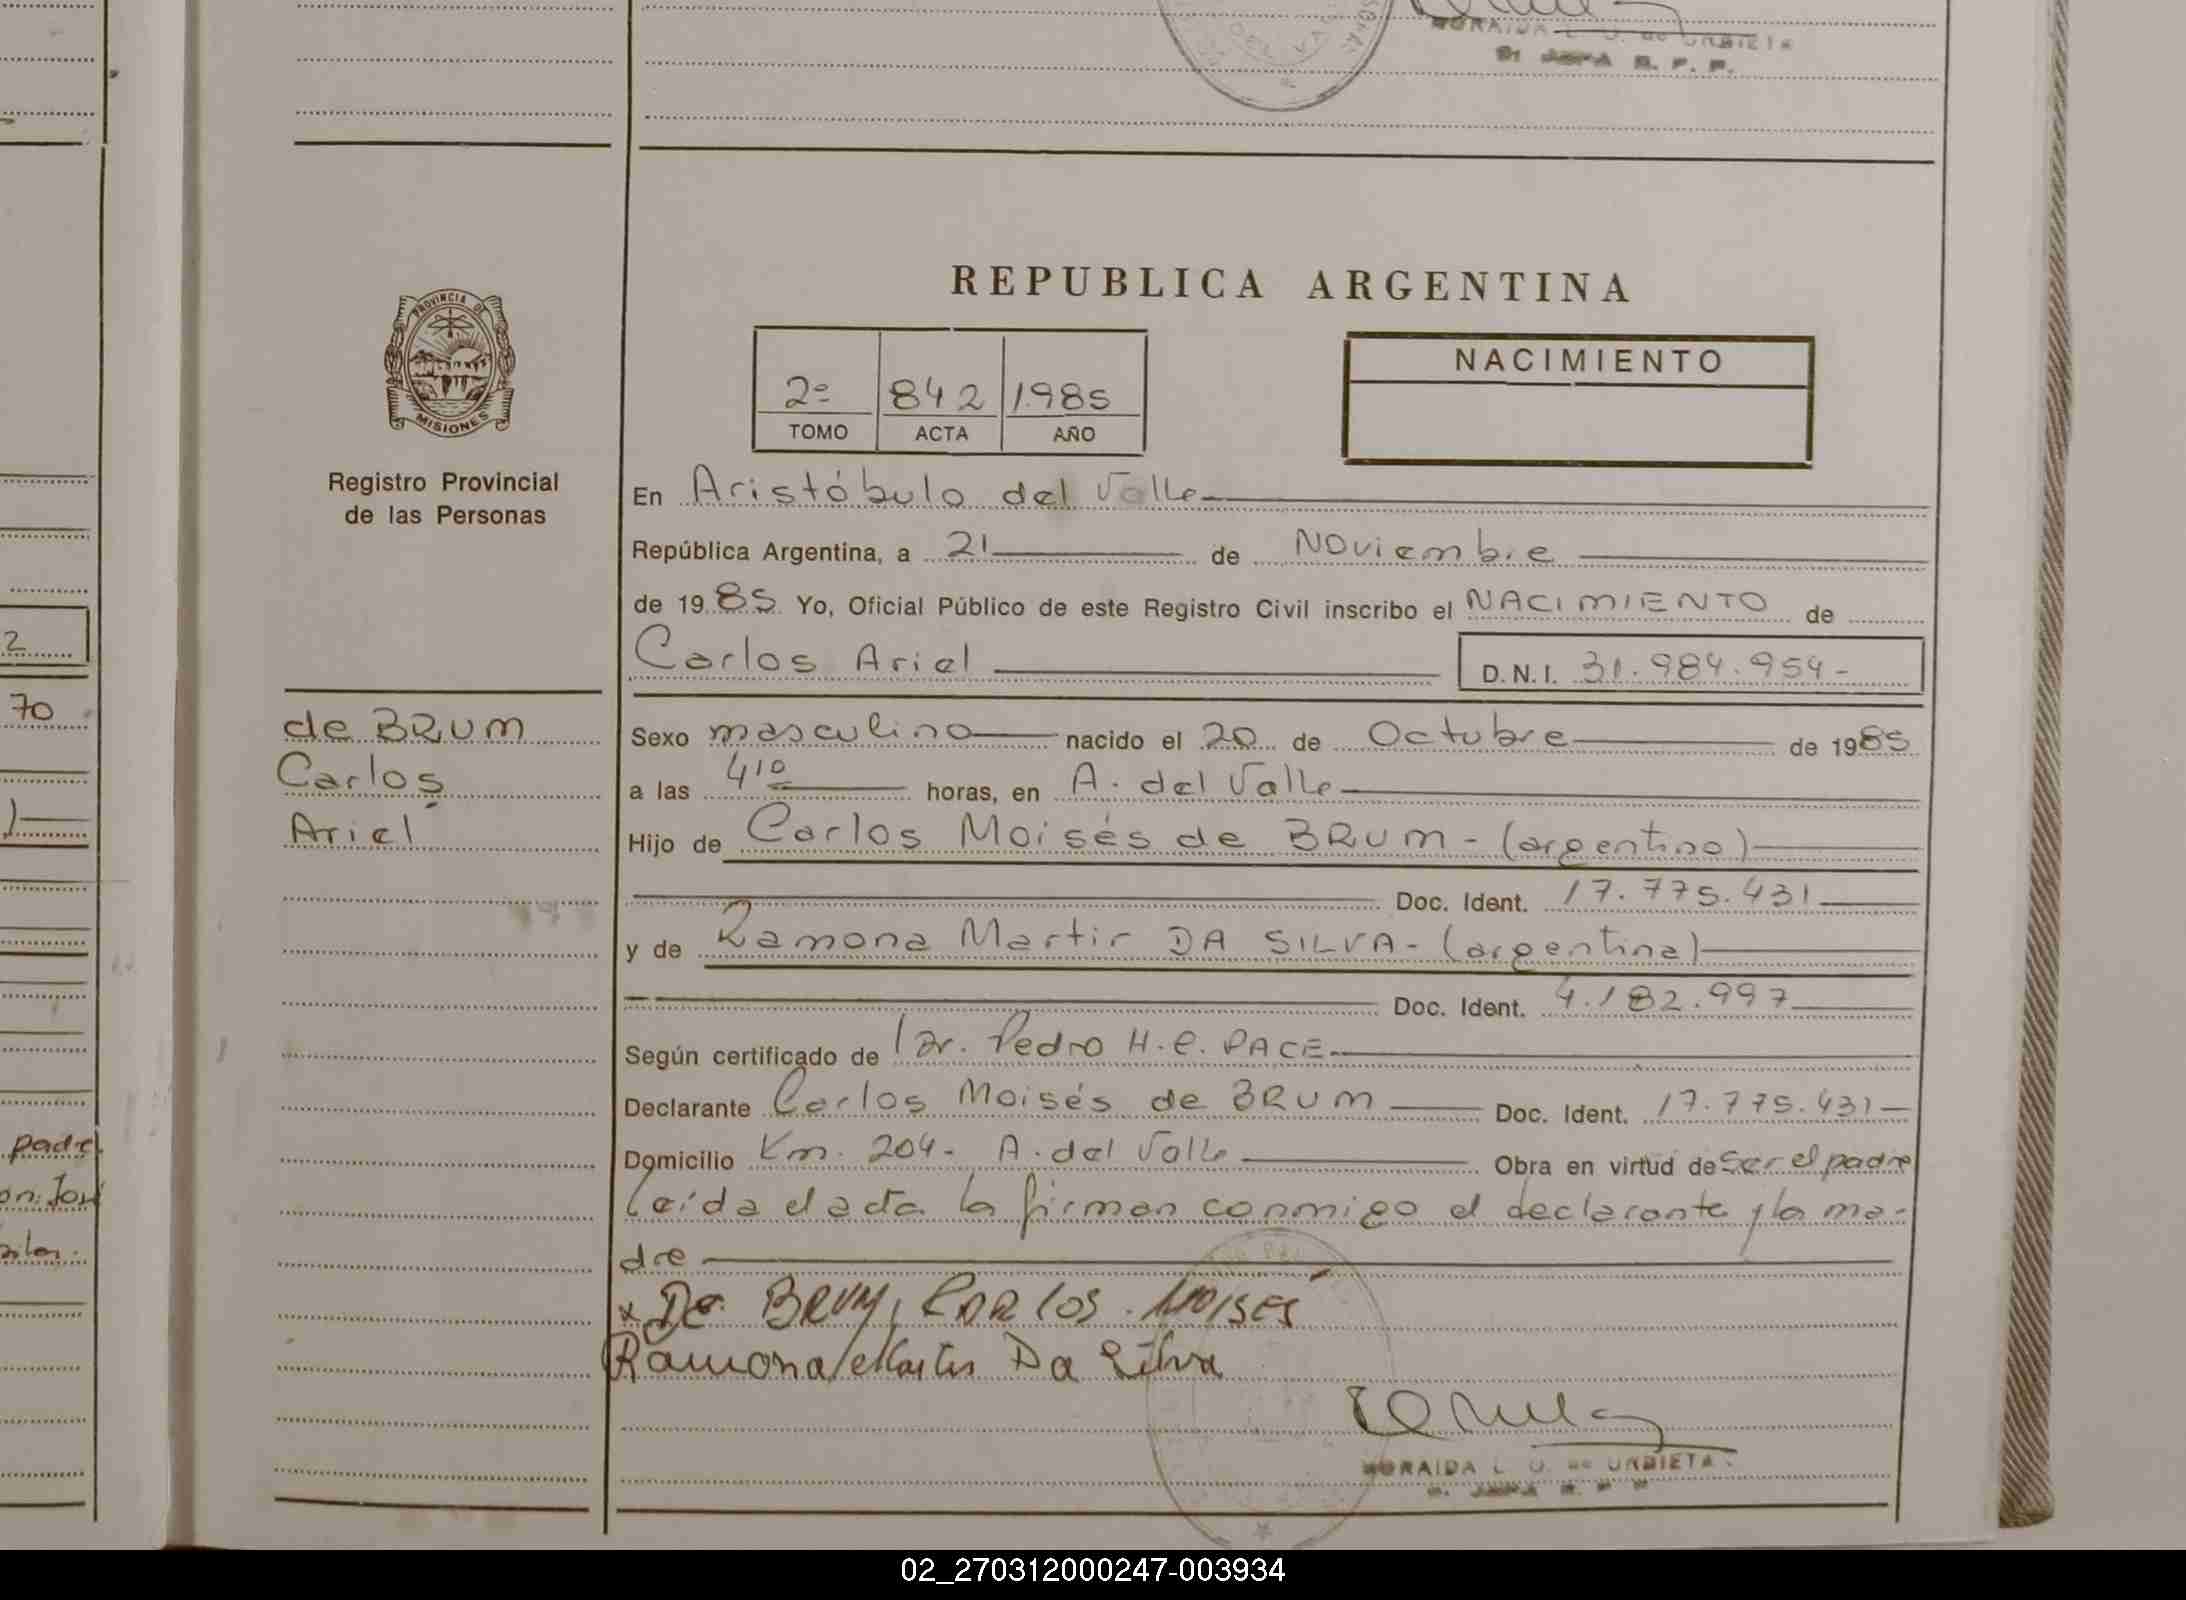 NORAIDA L. U. de URBIETA
REPUBLICA ARGENTINA
PROVINCIA DE
MISIONES
Registro Provincial
de las Personas
2º 842 1985
TOMO ACTA AÑO
NACIMIENTO
En Aristóbulo del Valle
República Argentina, a 21 de Noviembre
de 1985 Yo, Oficial Público de este Registro Civil inscribo el NACIMIENTO de
Carlos Ariel D.N.I. 31.984.954-
de BRUM
Carlos
Ariel
Sexo masculino nacido el 20 de Octubre de 1985
a las 4¹⁰ horas, en A. del Valle
Hijo de Carlos Moisés de BRUM - (argentino)
Doc. Ident. 17.775.431
y de Ramona Martir DA SILVA - (argentina)
Doc. Ident. 4.182.997
Según certificado de Dr. Pedro H. C. PACE
Declarante Carlos Moisés de BRUM Doc. Ident. 17.775.431
Domicilio Km. 204- A. del Valle Obra en virtud de ser el padre
Leída el acta la firman conmigo el declarante y la ma-
dre
x De BRUM, CARLOS. MOISES
Ramona Martir Da Silva
NORAIDA L. U. de URBIETA
2
70
padre
02_270312000247-003934